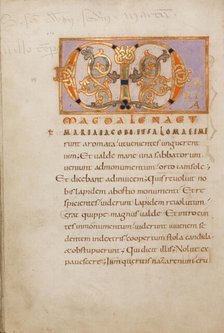 MAGDALENA ET
MARIA IACOBI ET SALOMAE EMI
erunt aromata ut uenientes unguerent
eum, Et ualde mane una sabbatorum
ueniunt ad monumentum orto iam sole;
Et dicebant ad inuicem; Quis reuoluet no
bis lapidem ab ostio monumenti; Et re
spicientes uiderunt lapidem reuolutum;
erat quippe magnus ualde Et introeun
tes in monumentum uiderunt iuuenem se
dentem in dextris coopertum stola candida
et obstupuerunt; Qui dicit illis; Nolite ex
pauescere; Iesum queritis nazarenum cru